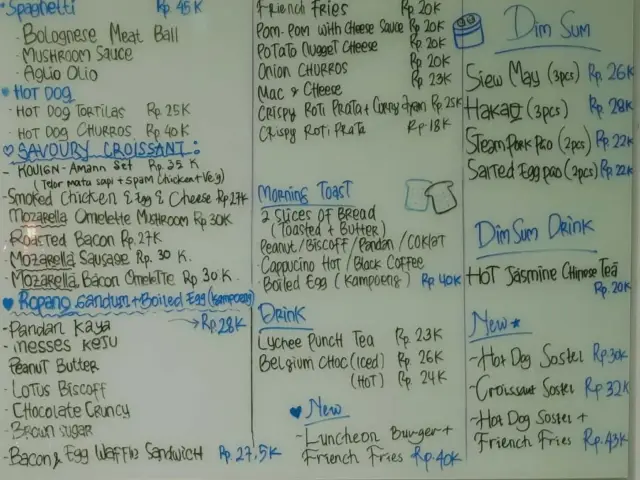 Spaghetti Rp 45K
- Bolognese Meat Ball
- Mushroom Sauce
- Aglio Olio
• Hot Dog
- Hot Dog Tortilas Rp 25K
- Hot Dog Churros Rp 40K
♡ Savoury Croissant:
- Kouign-Amann Set Rp.35 K
(Telor mata sapi + Spam Chicken + Veg)
- Smoked Chicken & Egg & Cheese Rp 27K
- Mozarella Omelette Mushroom Rp 30K
- Roasted Bacon Rp.27K
- Mozarella Sausage Rp. 30 K.
- Mozarella Bacon Omelette Rp 30 K.
♥ Ropang Gandum + Boiled Egg (Kampoeng)
- Pandan Kaya → Rp.28K
- Messes Keju
Peanut Butter
- Lotus Biscoff
- Chocolate Cruncy
- Brown Sugar
- Bacon & Egg Waffle Sandwich Rp. 27,5K
Friench Fries Rp 20K
Pom-Pom with Cheese Sauce Rp 20K
Potato Nugget Cheese Rp 20K
Onion Churros Rp 20K
Mac & Cheese Rp 23K
Crispy Roti Prata + Curry Rp 25K
Crispy Roti Prata Rp 18K
Morning Toast
2 Slices of Bread
(Toasted + Butter)
Peanut/Biscoff/Pandan/Coklat
- Cappucino Hot/Black Coffee
- Boiled Egg (Kampoeng) Rp 40K
Drink
Lychee Punch Tea Rp 23K
Belgium Choc (Iced) Rp 26K
(Hot) Rp 24K
♥ New
- Luncheon Burger +
Friench Fries Rp. 40K
Dim Sum
Siew May (3pcs) Rp. 26K
Hakau (3pcs) Rp. 28K
Steam Pork Pao (2pcs) Rp 22K
Salted Egg pao (2pcs) Rp 22K
Dim Sum Drink
Hot Jasmine Chinese Tea
Rp. 20K
New*
- Hot Dog Sostel Rp 30K
- Croissant Sostel Rp 32K
- Hot Dog Sostel +
Friench Fries Rp. 43K